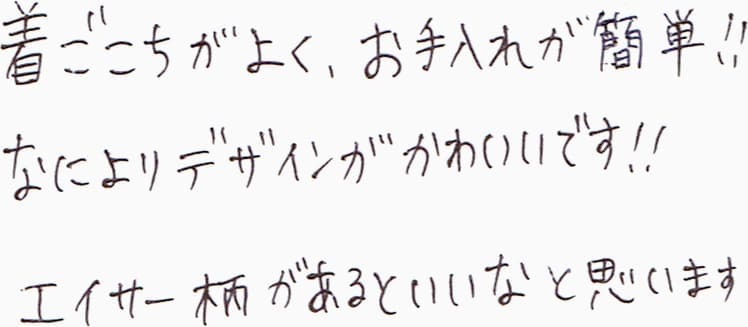 着ごこちがよく、お手入れが簡単!!
なによりデザインがかわいいです!!
エイサー柄があるといいなと思います